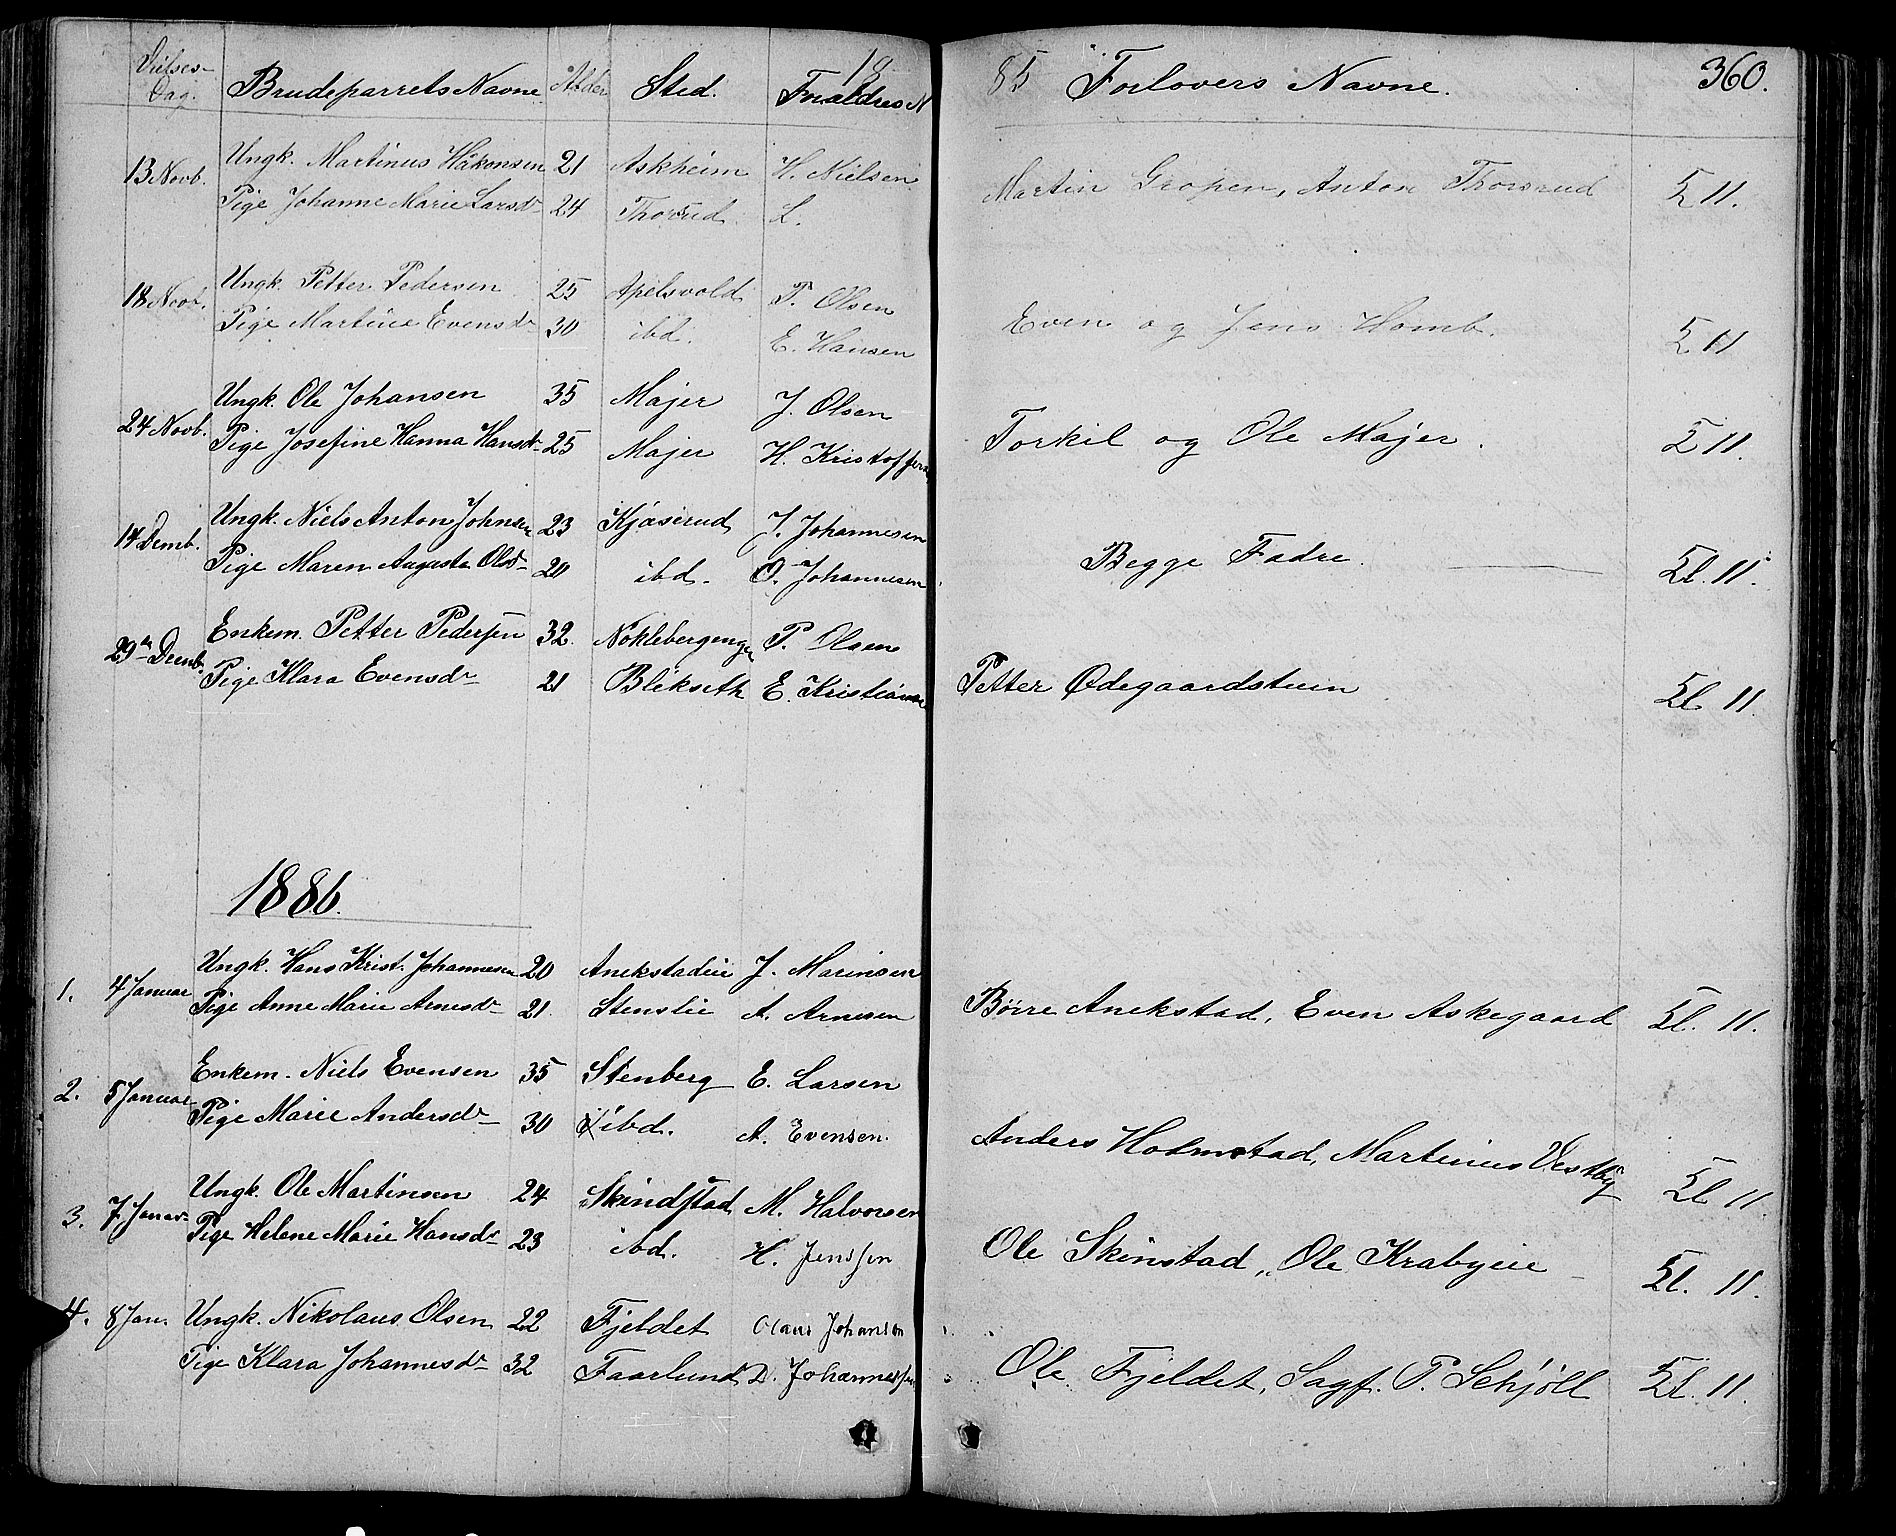 Vielses-
Dag.
Brudeparrets Navne
Alder
Sted.
18
Forældres N
85
Forlovers Navne.
360.
13 Novb.
Ungk. Martinus Håkonsen 21 Askheim H. Nielsen
Pige Johanne Marie Larsdr 24 Thorsrud L.
Martin Gropen, Anton Thorsrud
11.
18 Novb.
Ungk. Petter Pedersen 25 Apelsvold P. Olsen
Pige Martine Evensdr 30 ibd. E. Hansen
Even og Jens Homb.
11
24 Novb.
Ungk. Ole Johansen 35 Majer J. Olsen
Pige Josefine Hanna Hansdr 25 Majer H. Kristoffers
Torkil og Ole Majer.
11.
14 Demb.
Ungk. Niels Anton Johnsen 23 Kjøserud J. Johannesen
Pige Maren Augusta Olsdr 20 ibd. O. Johannesen
Begge Fædre.
11.
29de Demb.
Enkem. Petter Pedersen 32. Noklebergengen P. Olsen
Pige Klara Evensdr 21 Blikseth E. Kristiansen
Petter Ødegaardstuen
11.
1886.
1. 4 Januar
Ungk. Hans Krist. Johannesen 20 Anekstadeie J. Marinsen
Pige Anne Marie Arnesdr 21. Stenslie A. Arnesen
Børre Anekstad, Even Askegaard
11.
2. 5 Januar
Enkem. Niels Evensen 35 Stenberg E. Larsen
Pige Marie Andersdr 30 ibd. A. Evensen.
Anders Holmstad, Martinus Vestby
11.
3. 7 Januar
Ungk. Ole Martinsen 24 Skindstad M. Halvorsen
Pige Helene Marie Hansdr 23 ibd. H. Jenssen
Ole Skinstad, Ole Krabyeie
11.
4. 8 Jan.
Ungk. Nikolaus Olsen 22 Fjeldet Olaus Johansen
Pige Klara Johannesdr 32 Faarlund D. Johannessen
Ole Fjeldet, Sagf. P. Schjöll
11.